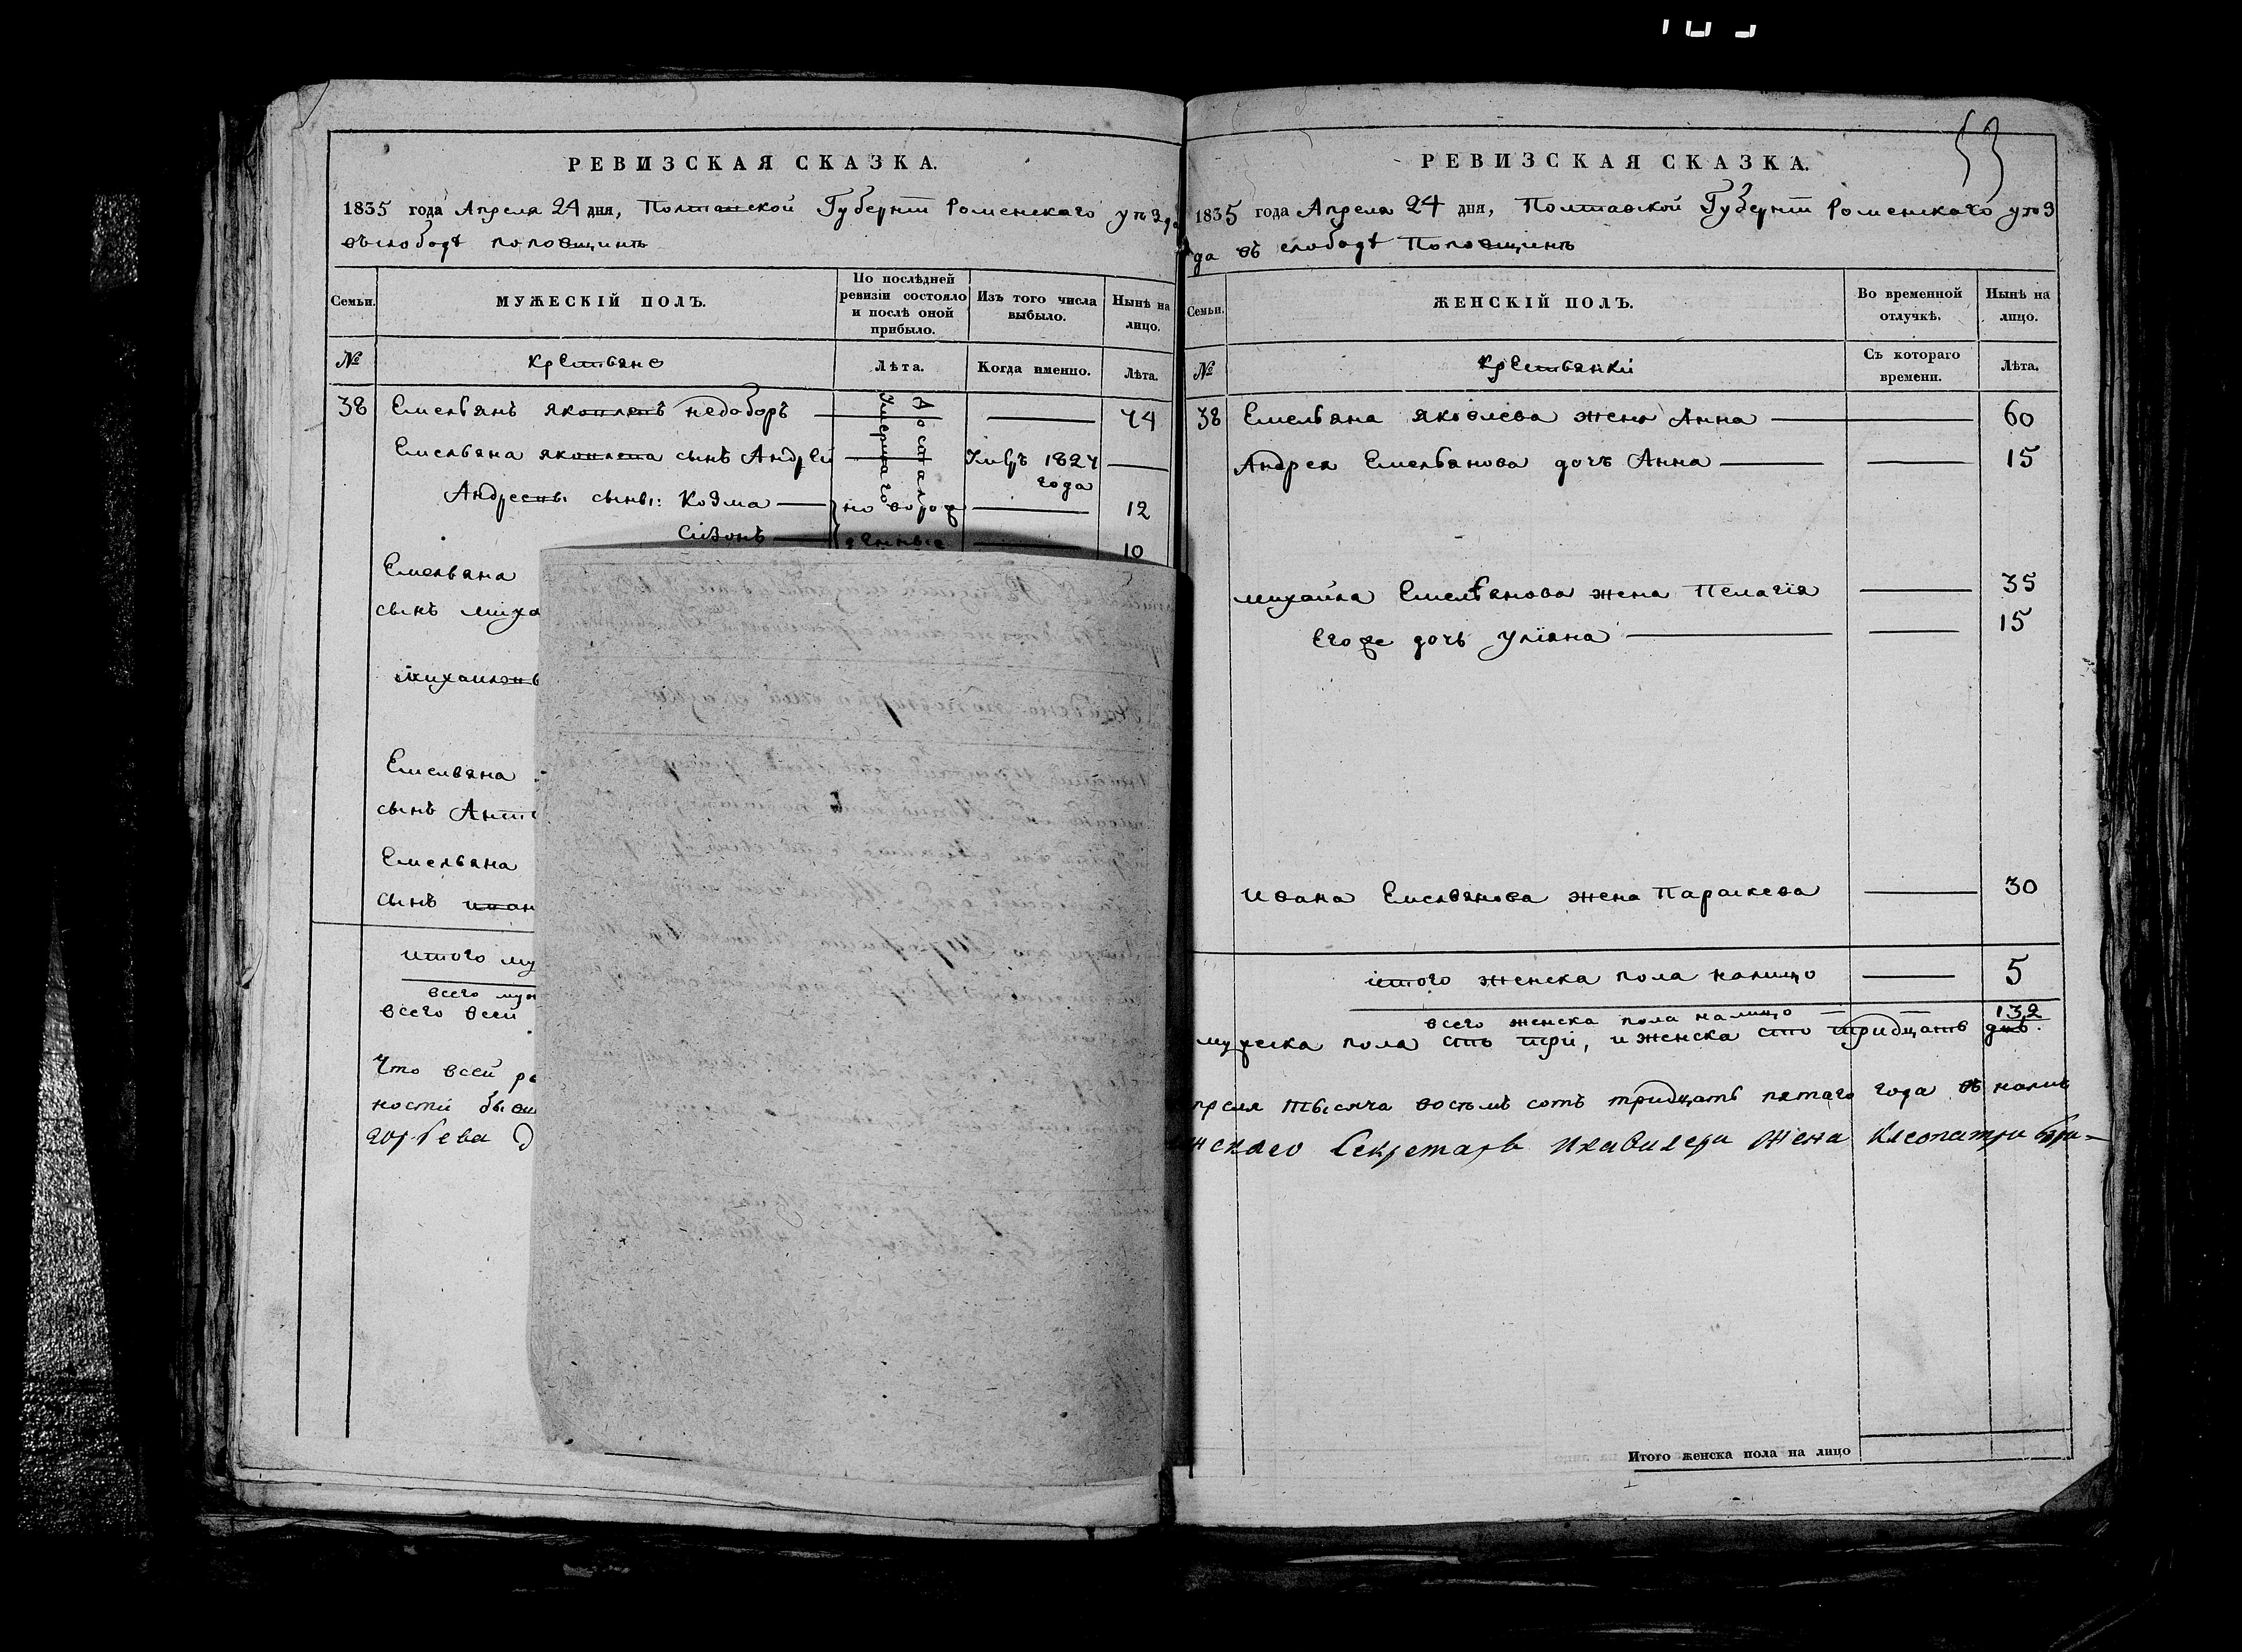 53
РЕВИЗСКАЯ СКАЗКА.
1835 года Апреля 24 дня, Полтавской Губерніи Роменскаго уѣзд
въ слободѣ Поповщинѣ
Семьи.
МУЖЕСКІЙ ПОЛЪ.
По послѣдней ревизіи состояло и послѣ оной прибыло.
Изъ того числа выбыло.
Нынѣ на лицо.
№
крестьяне
Лѣта.
Когда именно.
Лѣта.
38 Емельянъ яковлевъ недоборъ 74
Емельяна яковлева сынъ Андрей 1827 года
Андреевы сыны: Козма новорож 12
Сизонъ денные 10
Емельяна
сынъ миха
михаилов
Емельяна
сынъ Анто
Емельяна
сынъ иван
итого му
всего муж
всего всей
Что всей ре
ности
РЕВИЗСКАЯ СКАЗКА.
1835 года Апреля 24 дня, Полтавской Губерніи Роменскаго уѣз
да въ слободѣ Поповщинѣ
Семьи.
ЖЕНСКІЙ ПОЛЪ.
Во временной отлучкѣ.
Нынѣ на лицо.
№
крестьянки
Съ котораго времени.
Лѣта.
38 Емельяна яковлева жена Анна 60
Андрея Емельянова дочь Анна 15
михайла Емельянова жена Пелагія 35
Его же дочь Уліяна 15
ивана Емельянова жена Параскева 30
итого женска пола налицо 5
всего женска пола налицо 132
мужеска пола сто три, и женска сто тридцать двѣ.
преля тысяча восемъ сотъ тридцать пятаго года въ налич
нскаго Секретаря и кавалера жена Клеопатра
Итого женска пола на лицо